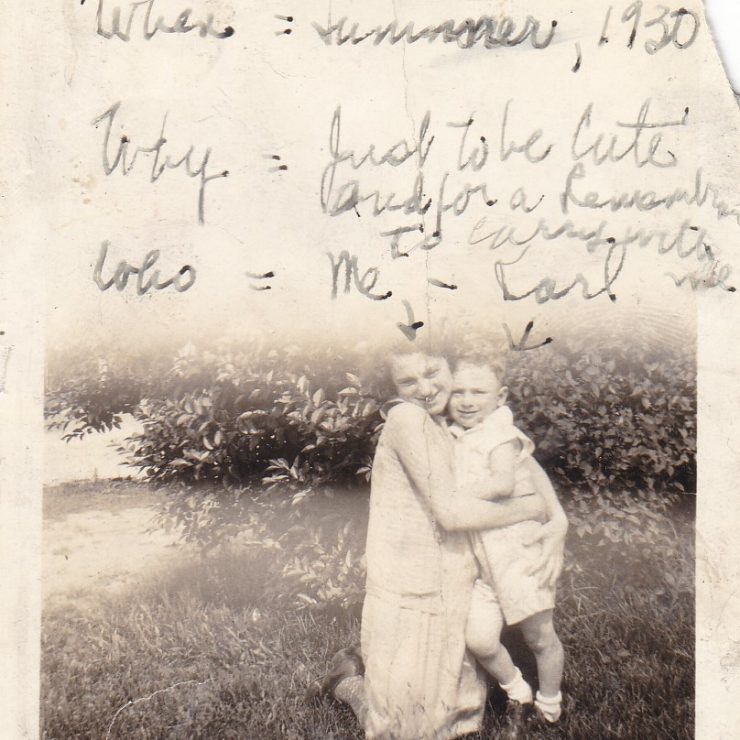 When = Summer, 1930
Why = Just to be Cute
and for a
to carry with
me
Who = Me - Earl